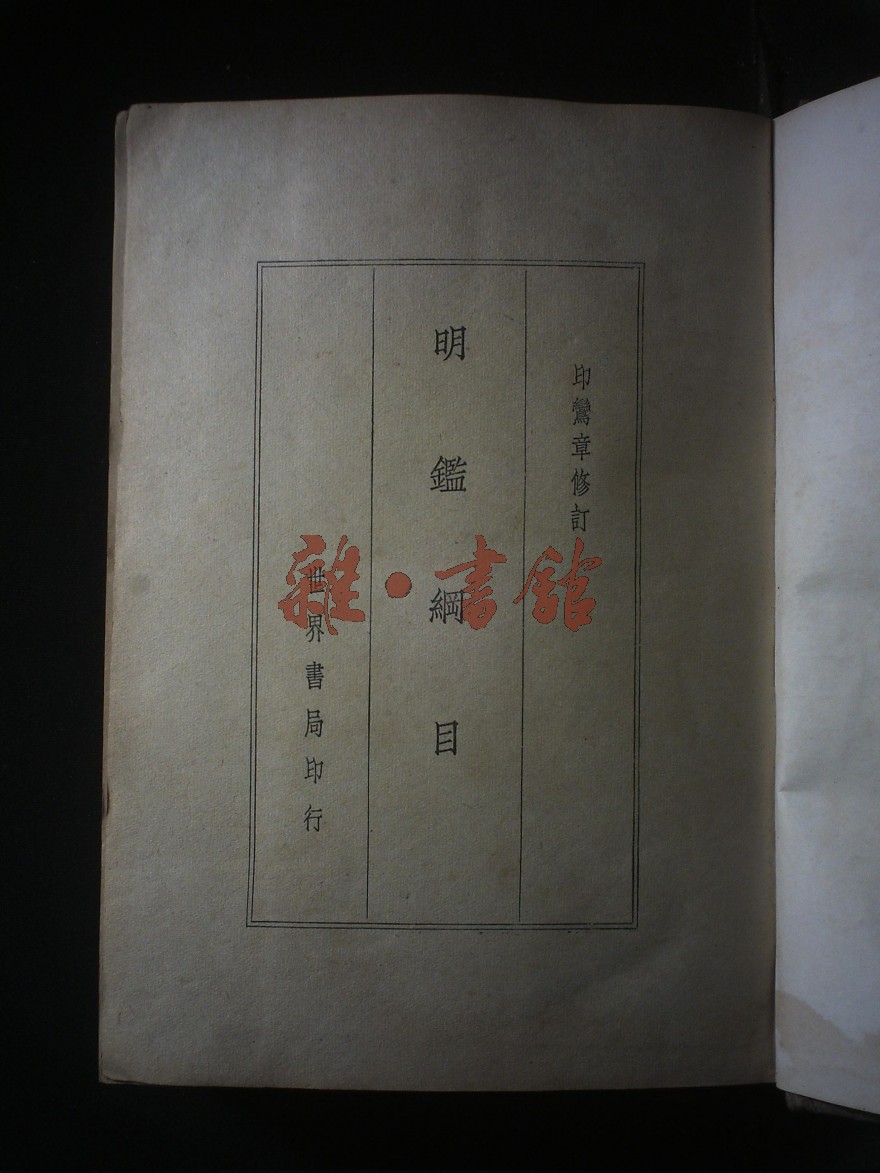 印鸞章修訂
明鑑綱目
世界書局印行
雜·書館